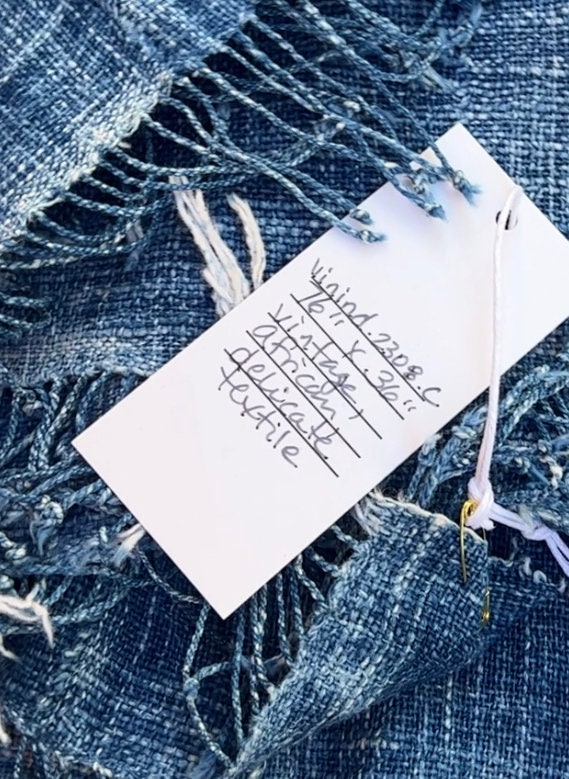 vinind.2308.C
16" x 36"
vintage,
african,
delicate
textile